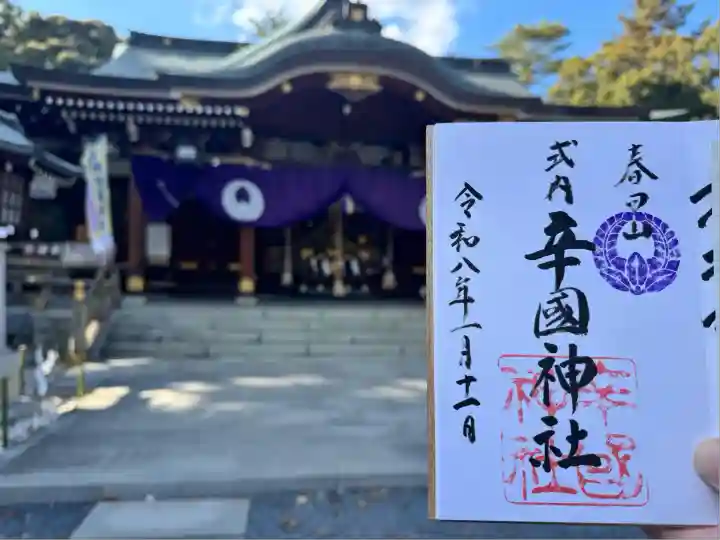 春日山
式内
辛國神社
令和八年一月十一日
辛國
神社